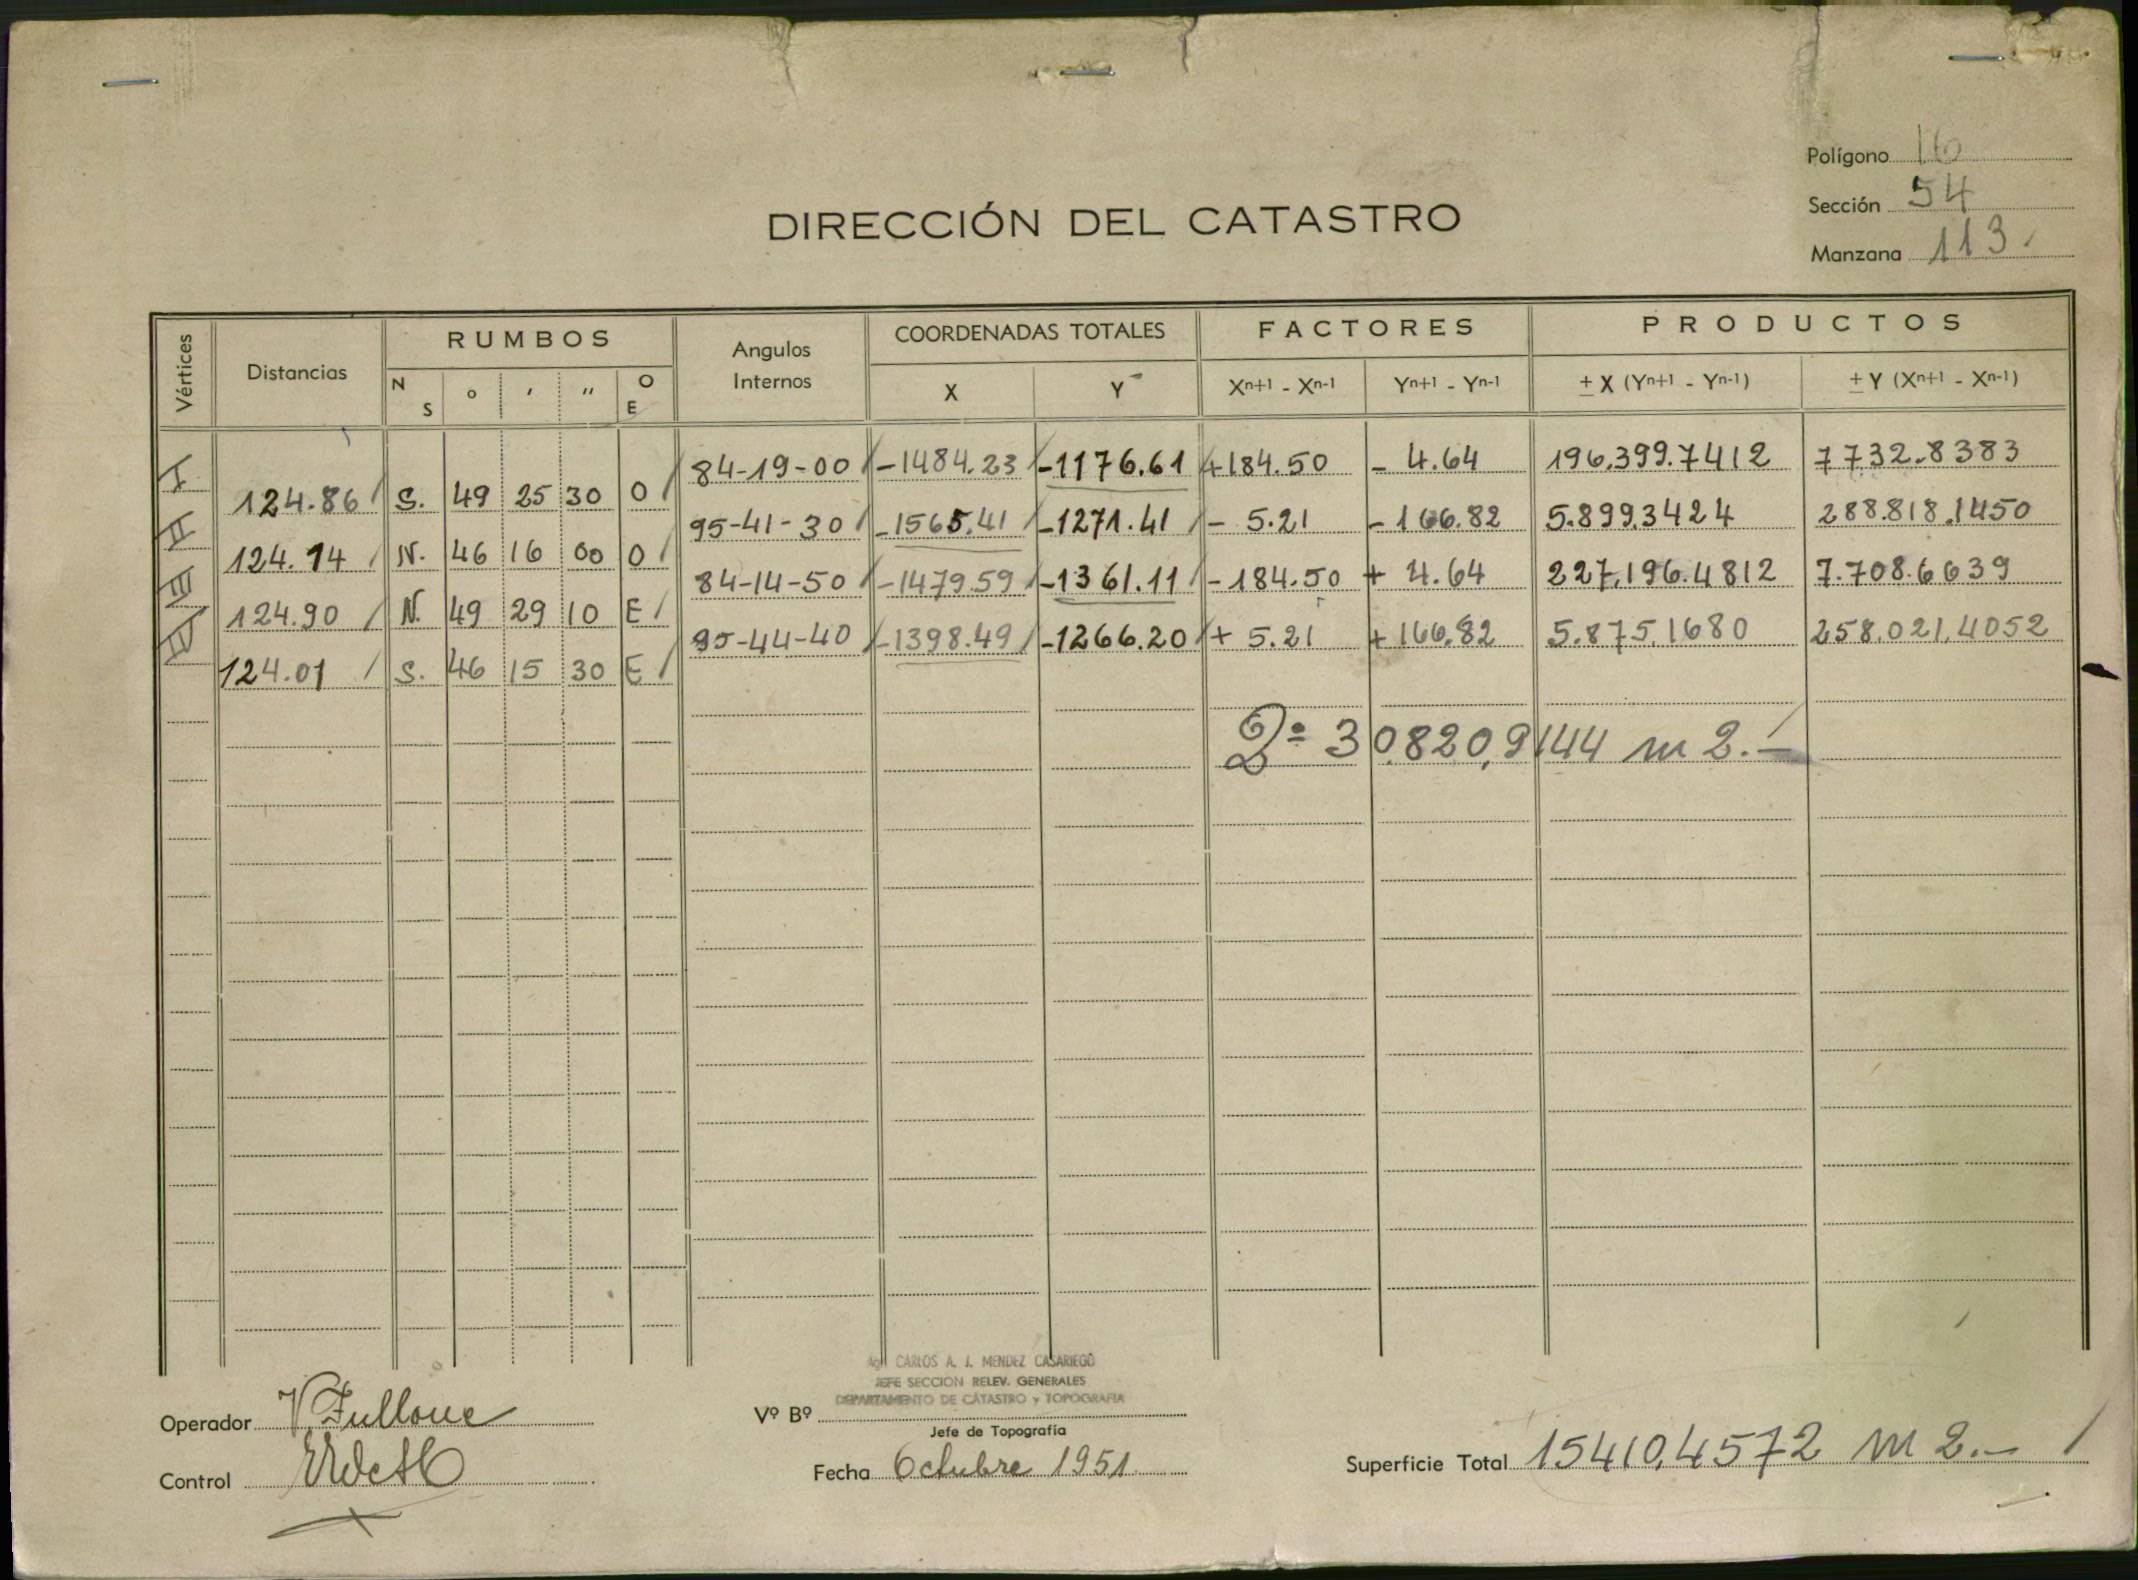 Polígono 16
Sección 54
Manzana 113
DIRECCIÓN DEL CATASTRO
Vértices Distancias RUMBOS Angulos Internos COORDENADAS TOTALES FACTORES PRODUCTOS
N S ° ′ ″ O E X Y Xⁿ⁺¹ - Xⁿ⁻¹ Yⁿ⁺¹ - Yⁿ⁻¹ ± X (Yⁿ⁺¹ - Yⁿ⁻¹) ± Y (Xⁿ⁺¹ - Xⁿ⁻¹)
I 84-19-00 -1484.23 -1176.61 +184.50 - 4.64 196.399.7412 7732.8383
124.86 S. 49 25 30 O
II 95-41-30 -1565.41 -1271.41 - 5.21 -166.82 5.899.3424 288.818.1450
124.14 N. 46 16 00 O
III 84-14-50 -1479.59 -1361.11 -184.50 + 4.64 227.196.4812 7.708.6639
124.90 N. 49 29 10 E
IV 95-44-40 -1398.49 -1266.20 + 5.21 +166.82 5.875.1680 258.021.4052
124.01 S. 46 15 30 E
2ª 30.820,9144 m2.-
Agr. CARLOS A. J. MENDEZ CASARIEGO
JEFE SECCION RELEV. GENERALES
DEPARTAMENTO DE CATASTRO y TOPOGRAFIA
Operador V. Fullone
Vº Bº
Jefe de Topografía
Control
Fecha Octubre 1951
Superficie Total 15410,4572 m2.-